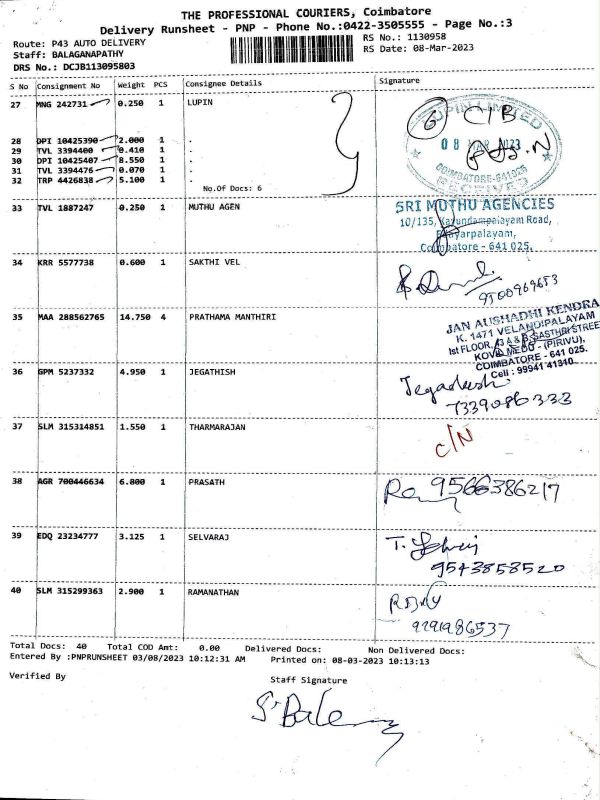 THE PROFESSIONAL COURIERS, Coimbatore
Delivery Runsheet - PNP - Phone No.:0422-3505555 - Page No.:3
Route: P43 AUTO DELIVERY
RS No.: 1130958
Staff: BALAGANAPATHY
RS Date: 08-Mar-2023
DRS No.: DCJB113095803
S No Consignment No Weight PCS Consignee Details Signature
27 MNG 242731 0.250 1 LUPIN
28 DPI 10425390 2.000 1 .
29 TVL 3394400 0.410 1 .
30 DPI 10425407 8.550 1 .
31 TVL 3394476 0.070 1 .
32 TRP 4426838 5.100 1 .
No.Of Docs: 6
6 C/B
LUPIN LIMITED
08 MAR 2023
COIMBATORE-641025
RECEIVED
33 TVL 1887247 0.250 1 MUTHU AGEN
SRI MUTHU AGENCIES
10/135, Kavundampalayam Road,
Coimbatore - 641 025.
34 KRR 5577738 0.600 1 SAKTHI VEL
35 MAA 288562765 14.750 4 PRATHAMA MANTHIRI
JAN AUSHADHI KENDRA
K. 1471 VELANDIPALAYAM
1st FLOOR, SASTHRI STREET
KOVIL MEDU - (PIRIVU),
COIMBATORE - 641 025.
Cell : 99941 41310
36 GPM 5237332 4.950 1 JEGATHISH
Jegadeesh
7339086333
37 SLM 315314851 1.550 1 THARMARAJAN
C/N
38 AGR 700446634 6.800 1 PRASATH
9566386217
39 EDQ 23234777 3.125 1 SELVARAJ
9543858520
40 SLM 315299363 2.900 1 RAMANATHAN
Total Docs: 40 Total COD Amt: 0.00 Delivered Docs: Non Delivered Docs:
Entered By :PNPRUNSHEET 03/08/2023 10:12:31 AM Printed on: 08-03-2023 10:13:13
Verified By
Staff Signature